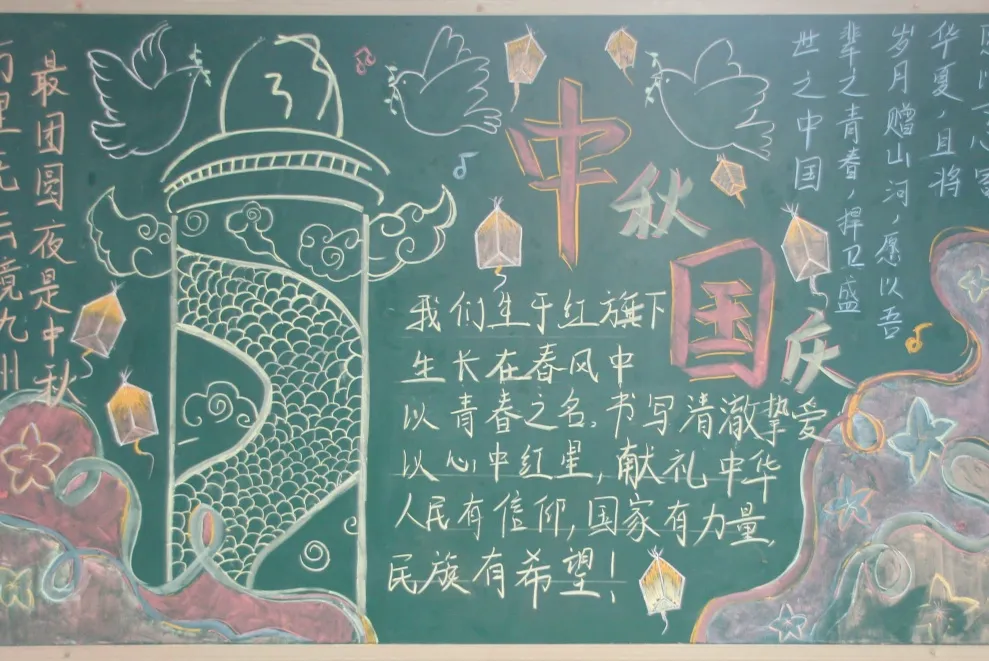 万里无云镜九州
最团圆夜是中秋
中
秋
国
庆
我们生于红旗下
生长在春风中
以青春之名,书写清澈挚爱
以心中红星,献礼中华
人民有信仰,国家有力量,
民族有希望!
愿以寸心寄
华夏,且将
岁月赠山河,愿以吾
辈之青春,捍卫盛
世之中国